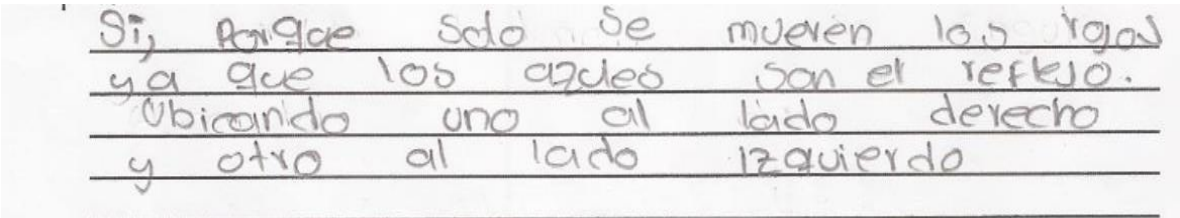 Si, Porque solo se mueven los rojos
ya que los azules son el reflejo.
Ubicando uno al lado derecho
y otro al lado izquierdo